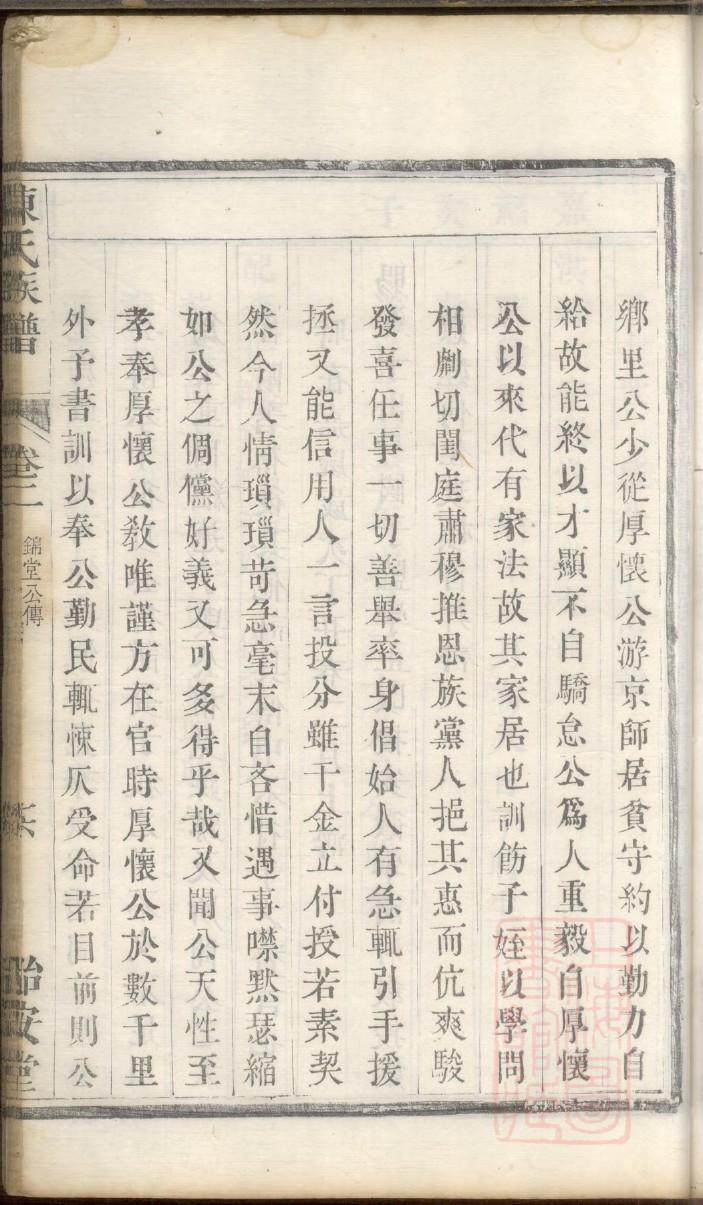 鄉里公少從厚懷公游京師居貧守約以勤力自
給故能終以才顯不自驕怠公爲人重毅自厚懷
公以來代有家法故其家居也訓飭子姪以學問
相劘切閨庭肅穆推恩族黨人挹其惠而伉爽駿
發喜任事一切善舉率身倡始人有急輒引手援
拯又能信用人一言投分雖千金立付授若素契
然今人情瑣瑣苛急毫末自吝惜遇事噤默瑟縮
如公之倜儻好義又可多得乎哉又聞公天性至
孝奉厚懷公敎唯謹方在官時厚懷公於數千里
外予書訓以奉公勤民輒悚仄受命若目前則公
陳氏族譜
卷二
錦堂公傳
怡安堂